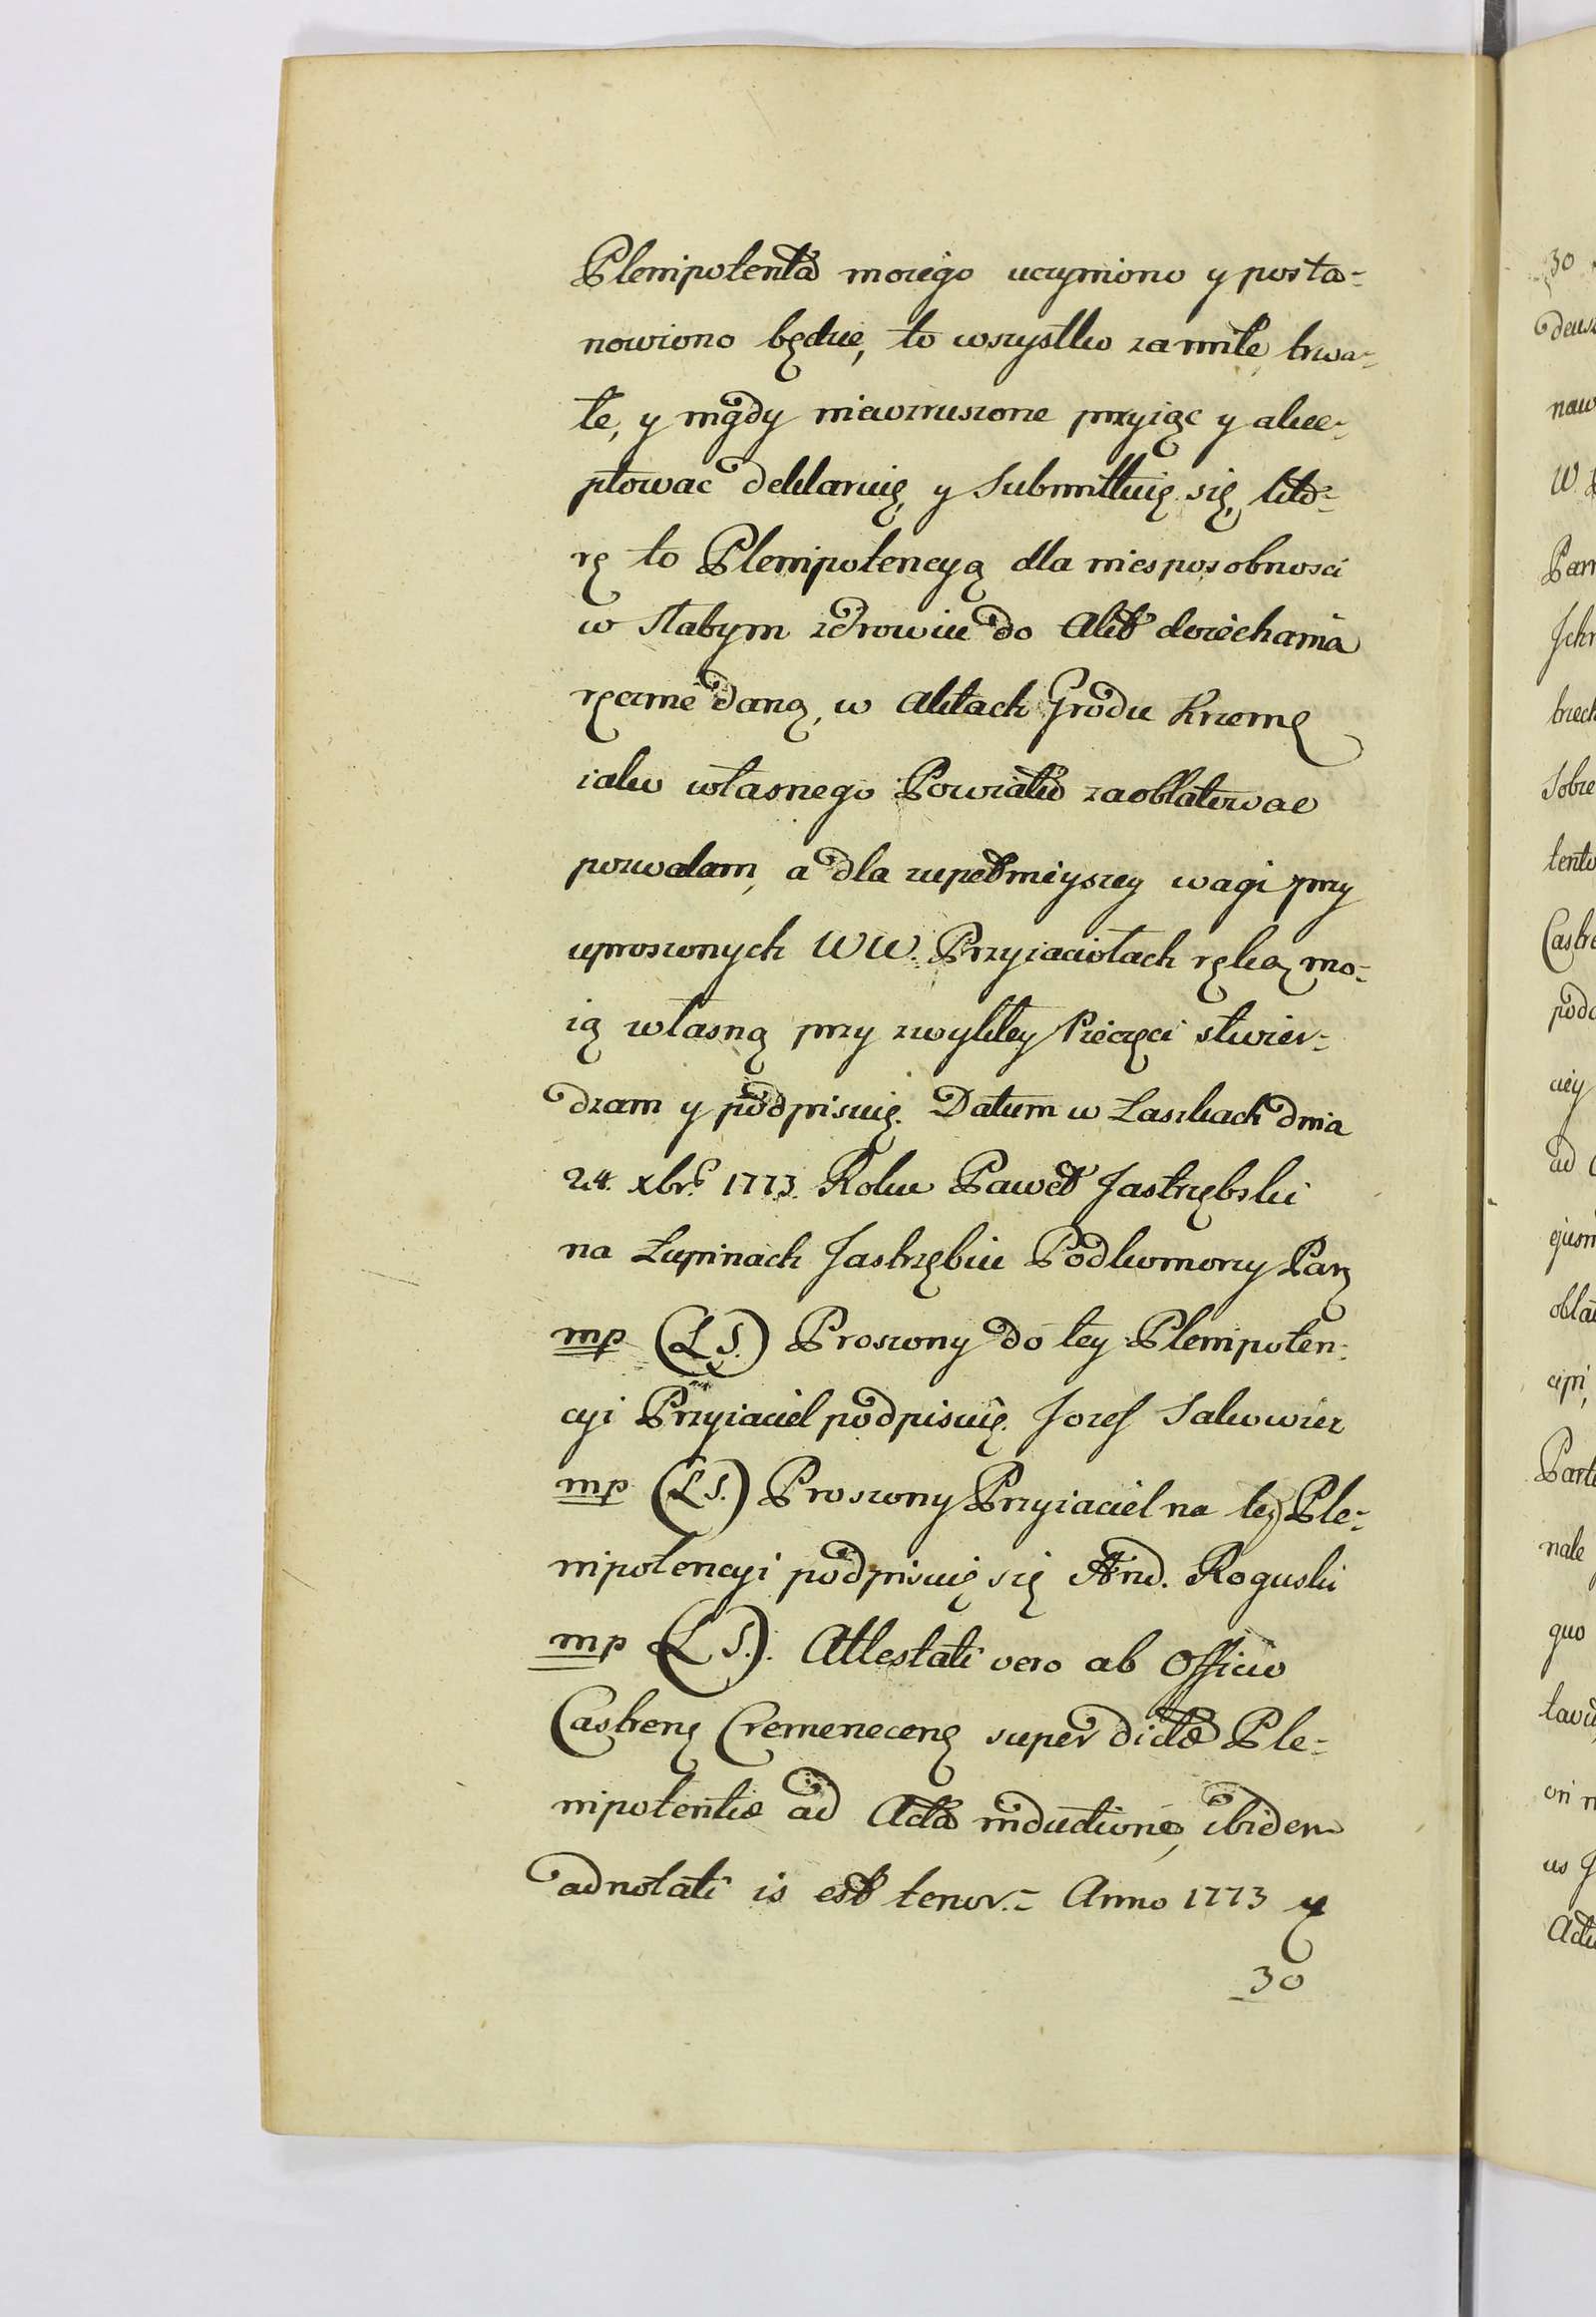 Plenipotenta moiego uczyniono y posta=
nowiono będzie, to wszystko za miłe, trwa=
łe, y nigdy niewzruszone przyiąc y akce=
ptować deklaruię, y Submittuię się, któ=
rę to Plenipotencyą dla niesposobnosci
w słabym zdrowiu do Akt doiechania
ręcznie daną, w Aktach Grodu Krzemę
iako własnego Powiatu zaoblatować
pozwalam, a dla zupełnieyszey wagi przy
uproszonych WW. Przyiaciołach ręką mo=
ią własną przy zwykłey Pieczęci stwier=
dzam y podpisuię. Datum w Laszkach dnia
24. xbrs 1773. Roku Paweł Jastrzębski
na Łupinach Jastrzębiu Podkomorzy Parę
mp (L S.) Proszony do tey Plenipoten=
cyi Przyiaciel podpisuię. Jozef Sakowicz
mp (L S.) Proszony Przyiaciel na tey Ple=
nipotencyi podpisuię się And. Roguski
mp (L S.). Attestati vero ab Officio
Castrenę Cremenecenę super dictæ Ple=
nipotentiæ ad Acta inductione, ibidem
adnotati is est tenor.= Anno 1773 y
30
30
deusz
naw
W
Pan
brzech
Sobie
tento
Castre
podc
ciey
ad
ejusm
obla
cipi,
Parte
nale
quo
ori n
us J
Actu